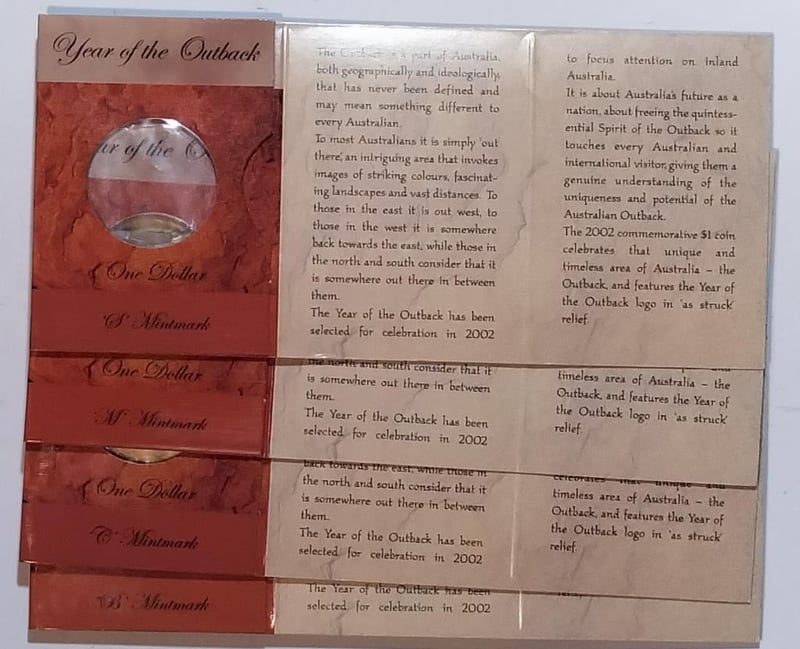 Year of the Outback
ar of the O
One Dollar
'S' Mintmark
The Outback is a part of Australia,
both geographically and ideologically,
that has never been defined and
may mean something different to
every Australian.
To most Australians it is simply 'out
there', an intriguing area that invokes
images of striking colours, fascinat-
ing landscapes and vast distances. To
those in the east it is out west, to
those in the west it is somewhere
back towards the east, while those in
the north and south consider that it
is somewhere out there in between
them.
The Year of the Outback has been
selected for celebration in 2002
to focus attention on inland
Australia.
It is about Australia's future as a
nation, about freeing the quintess-
ential Spirit of the Outback so it
touches every Australian and
international visitor, giving them a
genuine understanding of the
uniqueness and potential of the
Australian Outback.
The 2002 commemorative $1 coin
celebrates that unique and
timeless area of Australia – the
Outback, and features the Year of
the Outback logo in 'as struck'
relief.
One Dollar
'M' Mintmark
the north and south consider that it
is somewhere out there in between
them.
The Year of the Outback has been
selected for celebration in 2002
timeless area of Australia – the
Outback, and features the Year of
the Outback logo in 'as struck'
relief.
One Dollar
'C' Mintmark
back towards the east, while those in
the north and south consider that it
is somewhere out there in between
them.
The Year of the Outback has been
selected for celebration in 2002
celebrates that unique and
timeless area of Australia – the
Outback, and features the Year of
the Outback logo in 'as struck'
relief.
'B' Mintmark
The Year of the Outback has been
selected for celebration in 2002